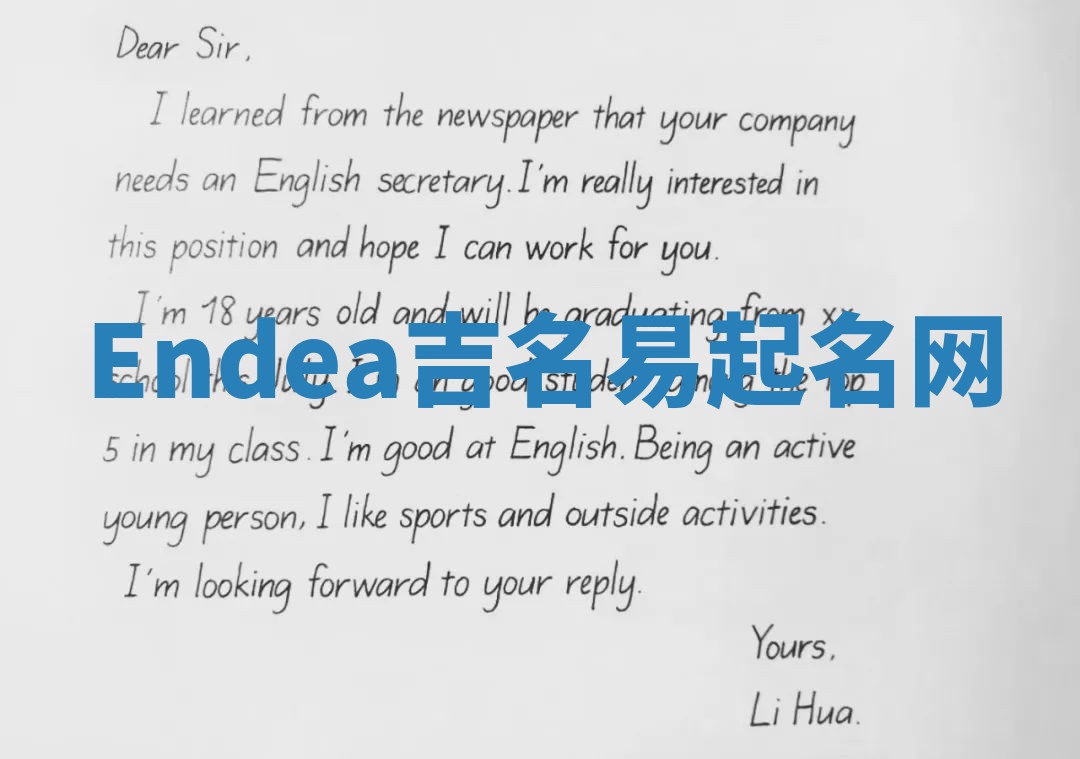 Dear Sir,
I learned from the newspaper that your company
needs an English secretary. I'm really interested in
this position and hope I can work for you.
I'm 18 years old and will be graduating from xx
Endea吉名易起名网
school this July. I'm an good student among the Top
5 in my class. I'm good at English. Being an active
young person, I like sports and outside activities.
I'm looking forward to your reply.
Yours,
Li Hua.